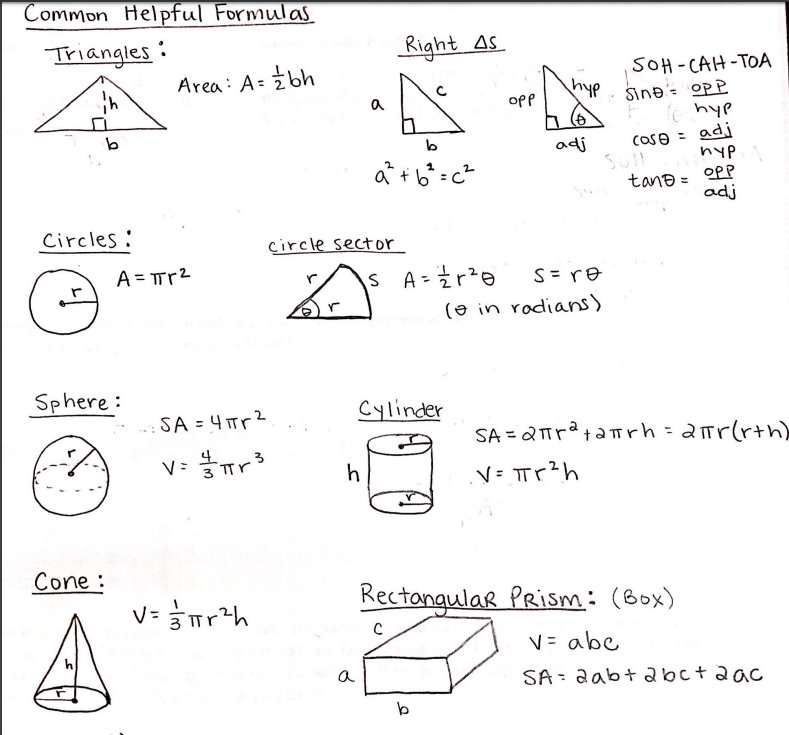 Common Helpful Formulas
Triangles:
Area: A = 1/2 bh
h
b
Right Δs
a
c
b
a² + b² = c²
opp
hyp
θ
adj
SOH-CAH-TOA
sinθ = opp/hyp
cosθ = adj/hyp
tanθ = opp/adj
Circles:
r
A = πr²
circle sector
r
s
θ
r
A = 1/2 r²θ
S = rθ
(θ in radians)
Sphere:
r
SA = 4πr²
V = 4/3 πr³
Cylinder
r
h
r
SA = 2πr² + 2πrh = 2πr(r+h)
V = πr²h
Cone:
h
r
V = 1/3 πr²h
Rectangular Prism: (Box)
c
a
b
V = abc
SA = 2ab + 2bc + 2ac